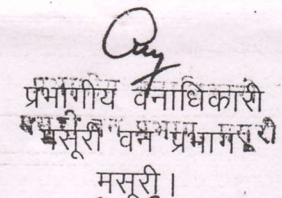 प्रभागीय वनाधिकारी
मसूरी वन प्रभाग
मसूरी।